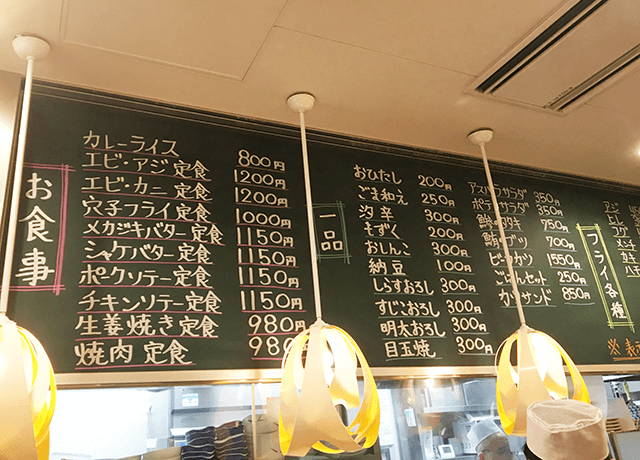 お食事
カレーライス 800円
エビ・アジ定食 1200円
エビ・カニ定食 1200円
穴子フライ定食 1000円
メカジキバター定食 1150円
シャケバター定食 1150円
ポークソテー定食 1150円
チキンソテー定食 1150円
生姜焼き定食 980円
焼肉定食 980円
一品
おひたし 200円
ごま和え 250円
汐辛 300円
もずく 200円
おしんこ 300円
納豆 100円
しらすおろし 300円
すじこおろし 300円
明太おろし 300円
目玉焼 300円
アスパラサラダ 350円
ポテトサラダ 350円
550円
700円
1550円
ごはんセット 250円
カツサンド 850円
フライ各種
アジ